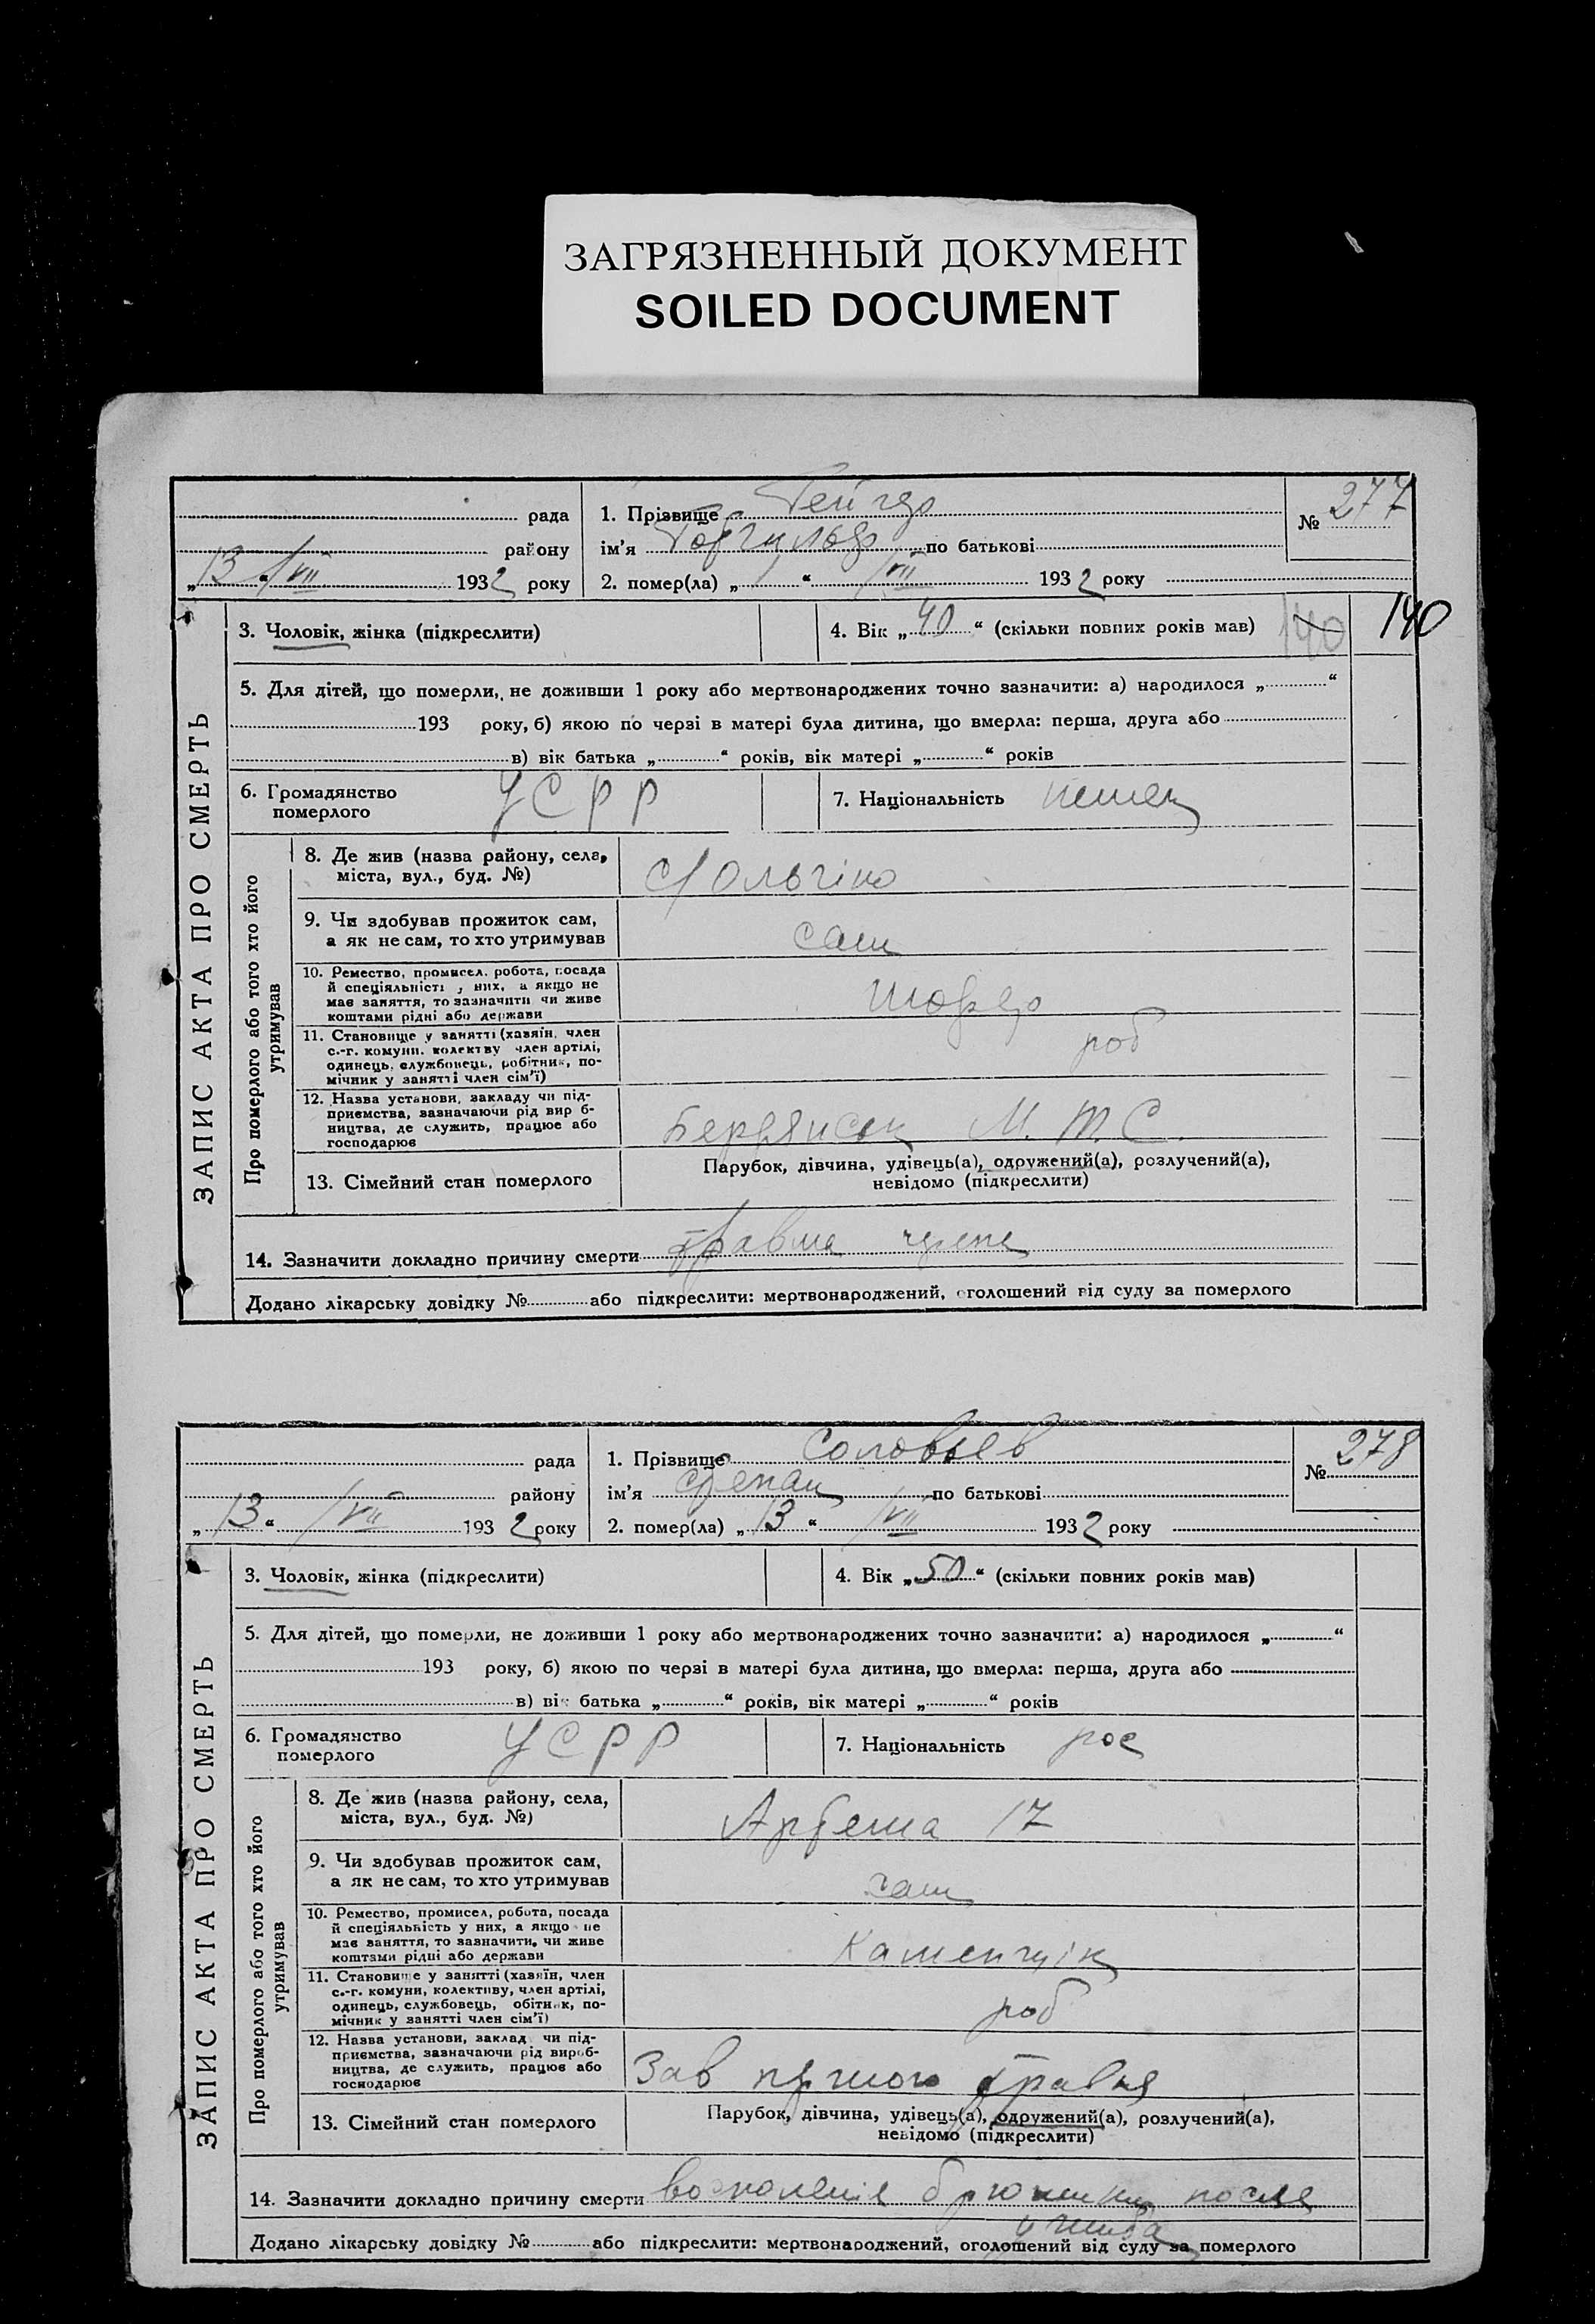 ЗАГРЯЗНЕННЫЙ ДОКУМЕНТ
SOILED DOCUMENT
рада
1. Прізвище Гейгер
№ 277
району
ім'я по батькові
„13“ /VII 1932 року
2. помер(ла) „1“ /VII 1932 року
ЗАПИС АКТА ПРО СМЕРТЬ
3. Чоловік, жінка (підкреслити)
4. Вік „40“ (скільки повних років мав)
140 140
5. Для дітей, що померли, не доживши 1 року або мертвонароджених точно зазначити: а) народилося „ “
193 року, б) якою по черзі в матері була дитина, що вмерла: перша, друга або
в) вік батька „ “ років, вік матері „ “ років
6. Громадянство померлого УСРР
7. Національність немец
Про померлого або того хто його утримував
8. Де жив (назва району, села, міста, вул., буд. №)
с/ Ольгіно
9. Чи здобував прожиток сам, а як не сам, то хто утримував
сам
10. Ремество, промисел, робота, посада
й спеціяльність у них, а якщо не
має заняття, то зазначити чи живе
коштами рідні або держави
шофер
11. Становище у занятті (хазяїн, член
с.-г. комуни, колективу член артілі,
одинець, службовець, робітник, по-
мічник у занятті член сім'ї)
роб
12. Назва установи, закладу чи під-
приємства, зазначаючи рід вироб-
ництва, де служить, працює або
господарює
Бердянск М. Т. С.
13. Сімейний стан померлого
Парубок, дівчина, удівець(а), одружений(а), розлучений(а),
невідомо (підкреслити)
14. Зазначити докладно причину смерти травма черепа
Додано лікарську довідку № або підкреслити: мертвонароджений, оголошений від суду за померлого
рада
1. Прізвище Соловьев
№ 278
району
ім'я Степан по батькові
„13“ /VII 1932 року
2. помер(ла) „13“ /VII 1932 року
ЗАПИС АКТА ПРО СМЕРТЬ
3. Чоловік, жінка (підкреслити)
4. Вік „50“ (скільки повних років мав)
5. Для дітей, що померли, не доживши 1 року або мертвонароджених точно зазначити: а) народилося „ “
193 року, б) якою по черзі в матері була дитина, що вмерла: перша, друга або
в) вік батька „ “ років, вік матері „ “ років
6. Громадянство померлого УСРР
7. Національність рос
Про померлого або того хто його утримував
8. Де жив (назва району, села, міста, вул., буд. №)
Артема 17
9. Чи здобував прожиток сам, а як не сам, то хто утримував
сам
10. Ремество, промисел, робота, посада
й спеціяльність у них, а якщо не
має заняття, то зазначити, чи живе
коштами рідні або держави
Каменщік
11. Становище у занятті (хазяїн, член
с.-г. комуни, колективу, член артілі,
одинець, службовець, робітник, по-
мічник у занятті член сім'ї)
роб
12. Назва установи, закладу чи під-
приємства, зазначаючи рід вироб-
ництва, де служить, працює або
господарює
Зав першого травня
13. Сімейний стан померлого
Парубок, дівчина, удівець(а), одружений(а), розлучений(а),
невідомо (підкреслити)
14. Зазначити докладно причину смерти воспаленіе брюшины после
ушиба
Додано лікарську довідку № або підкреслити: мертвонароджений, оголошений від суду за померлого